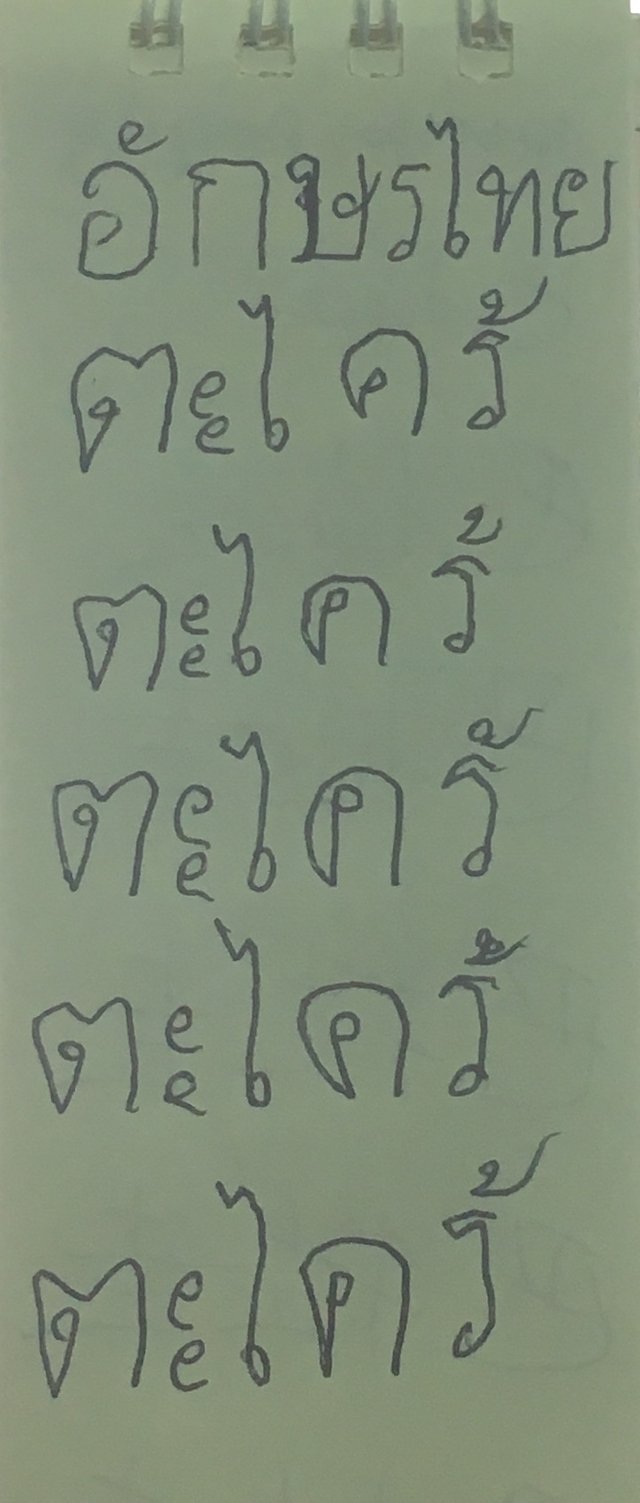 อักษรไทย
ตะไคร้
ตะไคร้
ตะไคร้
ตะไคร้
ตะไคร้